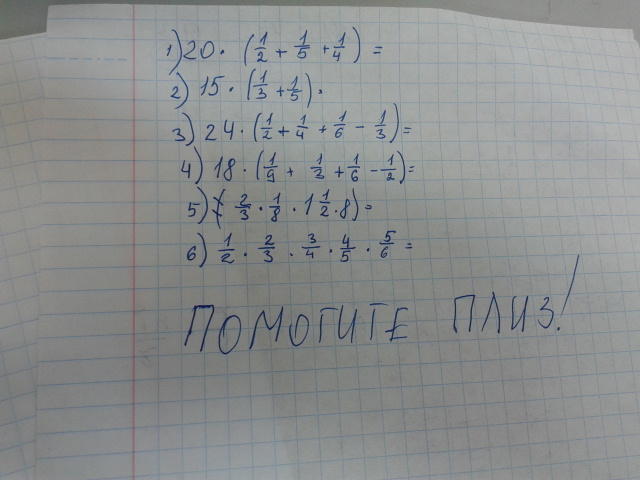 1) 20 · (1/2 + 1/5 + 1/4) =
2) 15 · (1/3 + 1/5) ·
3) 24 · (1/2 + 1/4 + 1/6 - 1/3) =
4) 18 · (1/9 + 1/3 + 1/6 - 1/2) =
5) 2/3 · 1/8 · 1 1/2 · 8) =
6) 1/2 · 2/3 · 3/4 · 4/5 · 5/6 =
ПОМОГИТЕ ПЛИЗ!